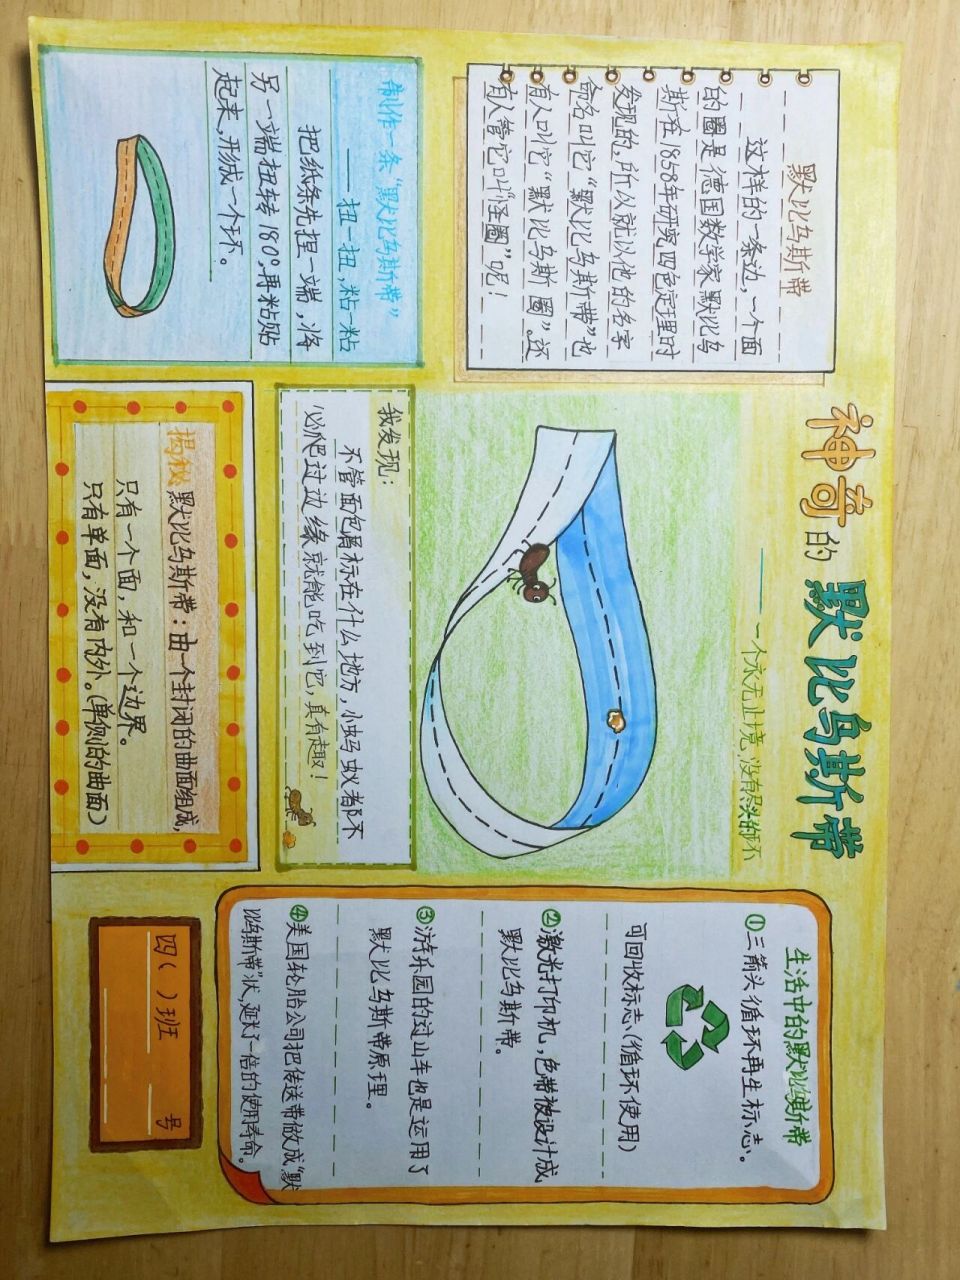 神奇的默比乌斯带
——一个永无止境,没有尽头的环
默比乌斯带
这样的一条边,一个面
的圈是德国数学家默比乌
斯在1858年研究四色定理时
发现的,所以就以他的名字
命名叫它“默比乌斯带”也
有人叫它“默比乌斯圈”,还
有人管它叫“怪圈”呢!
制作一条“默比乌斯带”
——扭一扭,粘一粘
把纸条先捏一端,将
另一端扭转180°,再粘贴
起来,形成一个环。
我发现:
不管面包屑标在什么地方,小蚂蚁都不
必爬过边缘就能吃到它,真有趣!
揭秘 默比乌斯带:由一个封闭的曲面组成,
只有一个面,和一个边界。
只有单面,没有内外。(单侧的曲面)
生活中的默比乌斯带
①三箭头循环再生标志。
可回收标志(循环使用)
②激光打印机,色带被设计成
默比乌斯带。
③游乐园的过山车也是运用了
默比乌斯带原理。
④美国轮胎公司把传送带做成“默
比乌斯带”状,延长了一倍的使用寿命。
四( )班 号